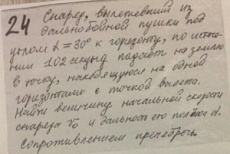 24 Снаряд, вылетевший из
дальнобойной пушки под
углом α = 30° к горизонту, по истече-
нии 102 секунд падает на землю
в точку, находящуюся на одной
горизонтали с точкой вылета.
Найти величину начальной скорости
снаряда V₀ и дальность его полёта d.
Сопротивлением пренебречь.